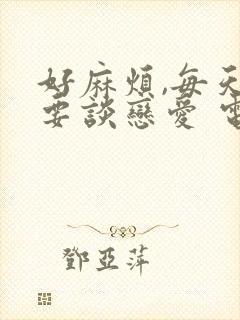 好麻煩,每天
要談戀愛
鄧亞萍